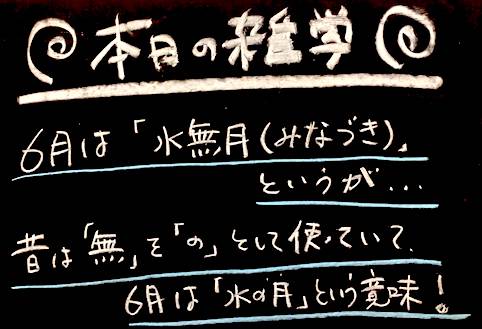 本日の雑学
6月は「水無月(みなづき)」
というが...
昔は「無」を「の」として使っていて、
6月は「水の月」という意味!